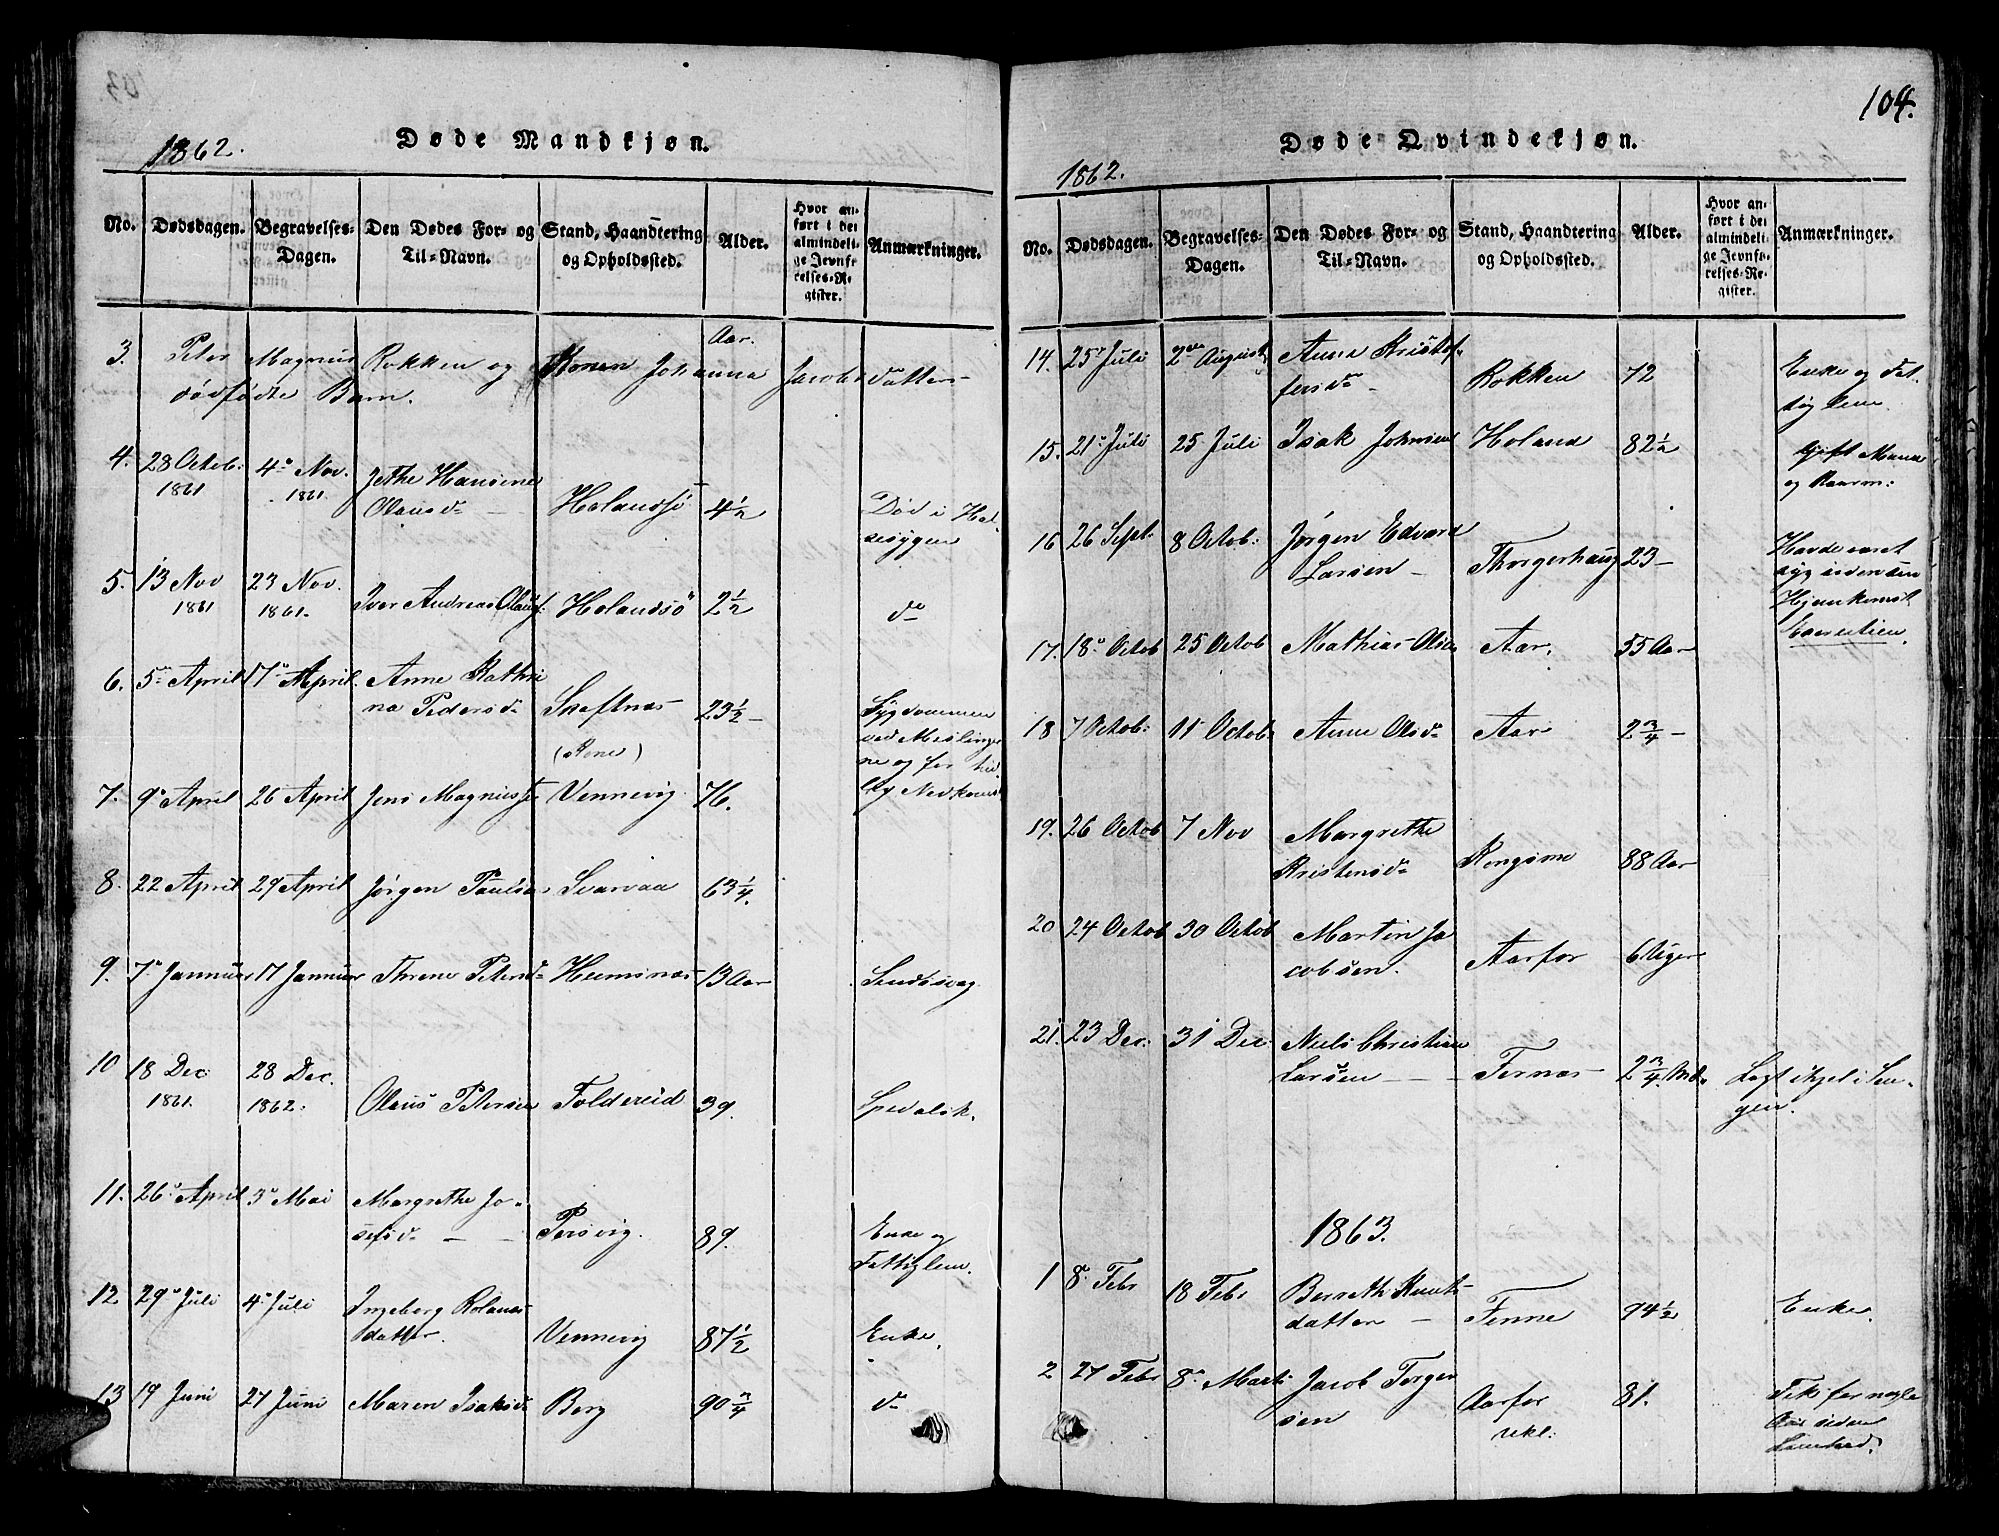 1862.
Døde Mandkjøn.
No. Dødsdagen. Begravelses-Dagen. Den Dødes For- og Til-Navn. Stand, Haandtering og Opholdssted. Alder. Hvor anført i det almindelige Jevnførelses-Register. Anmærkninger.
Aar.
3. Peter Magnus Rokken og Konen Johanna Jacobsdatters
dødfødte Barn.
4. 28 Octob: 1861 4de Nov. 1861. Jethe Hansine Olausd. Holandsö 4½ Död i Halsesygen
5. 13 Nov 1861 23 Nov. 1861. Iver Andreas Olausf. Holandsö 2½ do
6. 5te April 17de April. Anne Kathrina Pedersd. Skeftnæs (Kone) 23½ Sygdommen ved Meslingerne og for tidlig Nedkomst
7. 9de April 26 April Jens Magnus Vennevig. 76.
8. 22 April 29 April Jörgen Paulsen Svarvaa 63¼.
9. 7de Januar 17 Januar Threne Petersd. Heimsnæs 13 Aar Sindssvag
10 18 Dec 1861. 28 Dec. 1862. Olaus Petersen Foldereid 39. Spedalsk.
11. 26de April 3de Mai Margrethe Josefsd. Persvig. 89. Enke og Fattiglem.
12 29de Juli 4de Juli Ingeborg Rolandsdatter. Vennevig 87½ Enke.
13 19 Juni 27 Juni Maren Isaksd. Berg 90¾ do
104.
1862.
Døde Qvindekjøn.
No. Dødsdagen. Begravelses-Dagen. Den Dødes For- og Til-Navn. Stand, Haandtering og Opholdssted. Alder. Hvor anført i det almindelige Jevnførelses-Register. Anmærkninger.
14. 25de Juli 2den August Anne Kristoffersd. Rokken 72 Enke og Fattig Lem.
15. 21de Juli 25 Juli Isak Johnsen Holand 82½ Gift Mand og Kaarm:
16 26 Sept. 8 Octob: Jörgen Edvard Larsen Thorgerhaug 23 Havde været syg siden sin Hjemkomst
17. 18de Octob 25 Octob Mathias Olsen Aar. 55 Aar
18 7 Octob: 11 Octob Anne Olsd. Aar 2¾
19. 26 Octob 7 Nov Margrethe Kristensd. Kongsmo 88 Aar
20 24 Octob 30 Octob Martin Jacobsen. Aarfor 6 Uger
21. 23 Dec. 31 Dec. Niels Christian Larsen Ternæs 2¾ Md. Lagt ihjel i Sengen.
1863.
1 8 Febr 18 Febr Berreth Knutsdatter Finne 94½ Enke.
2 27 Febr 8de Marts Jacob Torgersen Aarfor 81.